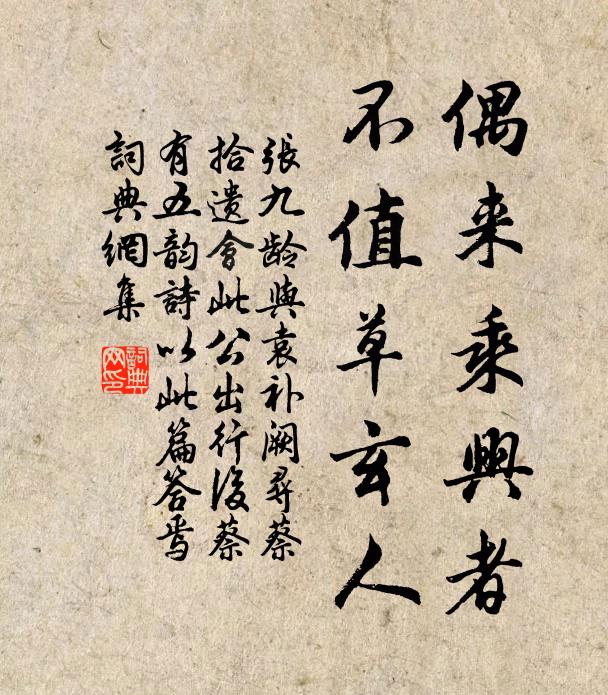 偶来乘興者
不值草玄人
張九龄與袁补阙尋蔡
拾遗會此公出行後蔡
有五韵詩以此篇答焉
詞典網集
詞典
网印